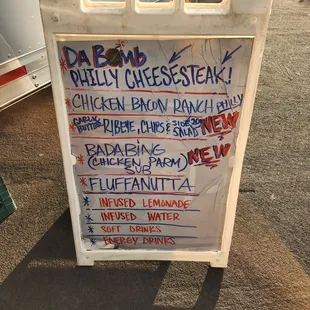 * DA BOMB
PHILLY CHEESESTEAK!
* CHICKEN BACON RANCH PHILLY
* GARLIC BUTTER RIBEYE, CHIPS & SIDE SALAD NEW
* BADABING
(CHICKEN PARM) NEW
SUB
* FLUFFANUTTA
* INFUSED LEMONADE
* INFUSED WATER
* SOFT DRINKS
* ENERGY DRINKS